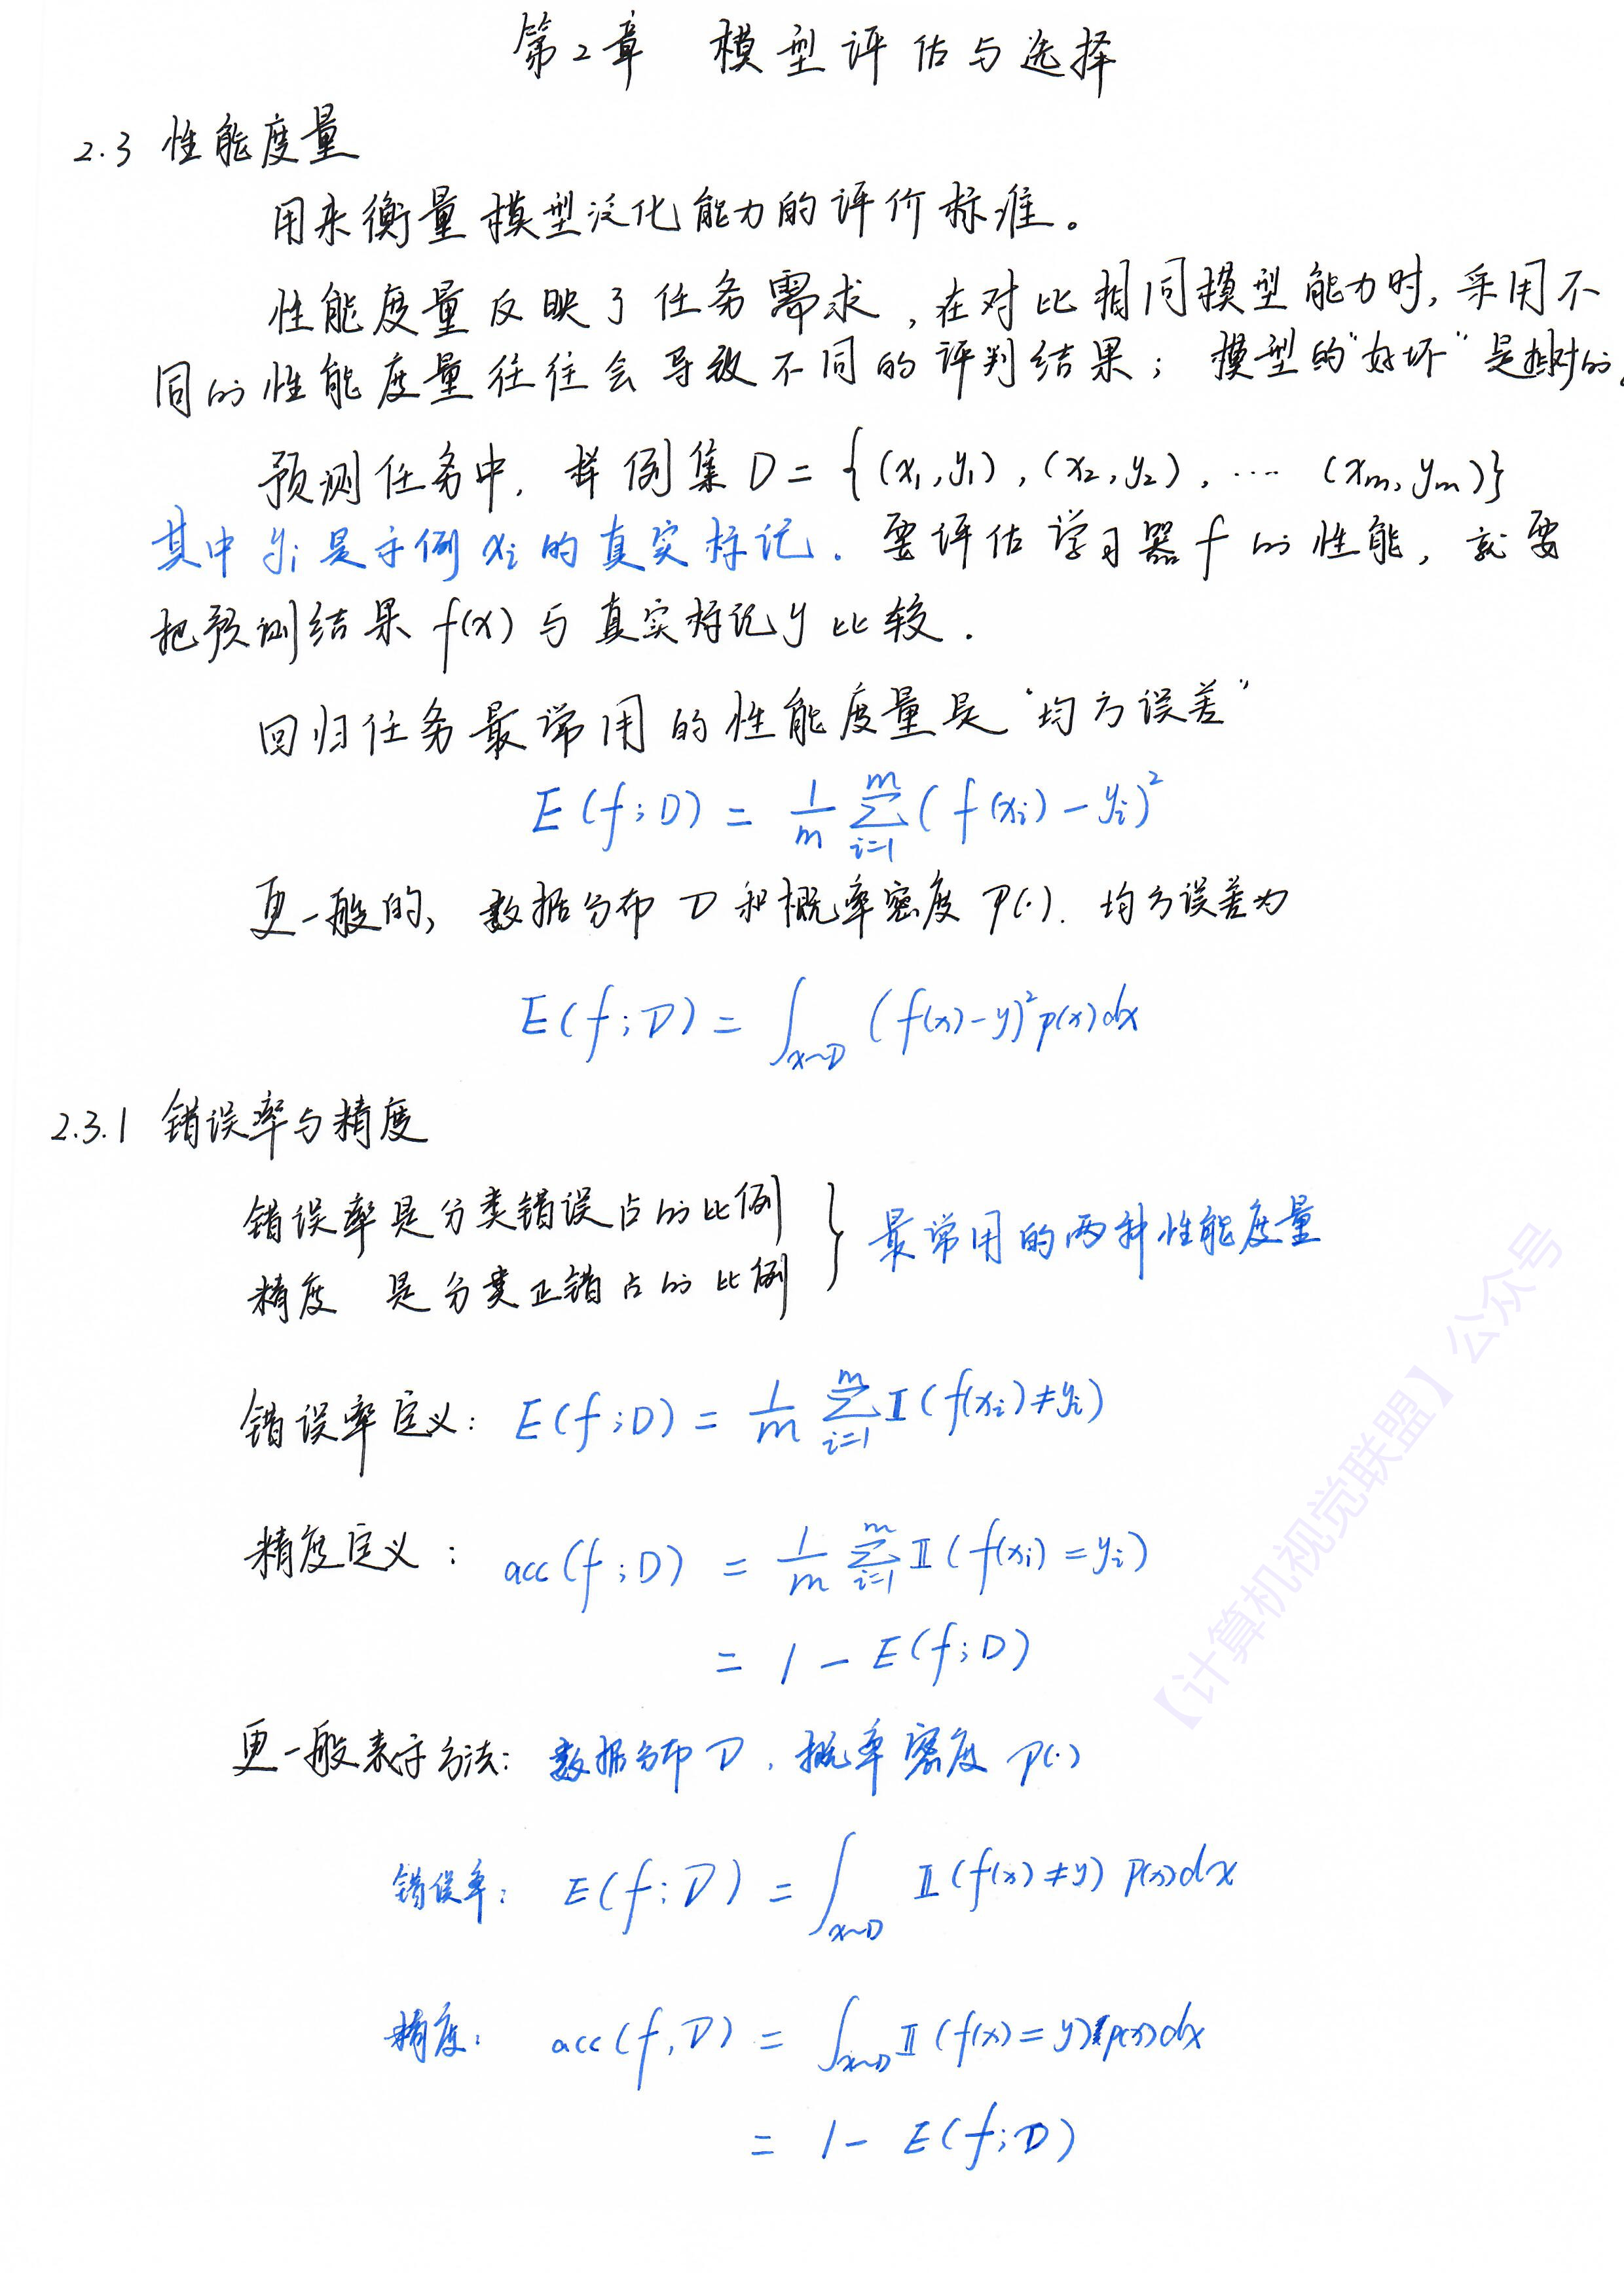 第2章 模型评估与选择
2.3 性能度量
用来衡量模型泛化能力的评价标准。
性能度量反映了任务需求,在对比相同模型能力时,采用不
同的性能度量往往会导致不同的评判结果;模型的"好坏"是相对的。
预测任务中,样例集 D = {(x₁,y₁),(x₂,y₂),… (xₘ,yₘ)}
其中 yᵢ 是示例 xᵢ 的真实标记.要评估学习器 f 的性能,就要
把预测结果 f(x) 与真实标记 y 比较.
回归任务最常用的性能度量是"均方误差"
E(f;D) = 1/m ∑_{i=1}^{m} (f(xᵢ) - yᵢ)²
更一般的,数据分布 𝒟 和概率密度 P(·).均方误差为
E(f;𝒟) = ∫_{x~𝒟} (f(x)-y)² p(x)dx
2.3.1 错误率与精度
错误率是分类错误占的比例
精度 是分类正错占的比例 } 最常用的两种性能度量
错误率定义: E(f;D) = 1/m ∑_{i=1}^{m} 𝕀(f(xᵢ)≠yᵢ)
精度定义: acc(f;D) = 1/m ∑_{i=1}^{m} 𝕀(f(xᵢ)=yᵢ)
= 1 - E(f;D)
更一般表示方法: 数据分布 𝒟,概率密度 P(·)
错误率: E(f;𝒟) = ∫_{x~𝒟} 𝕀(f(x)≠y) P(x)dx
精度: acc(f,𝒟) = ∫_{x~𝒟} 𝕀(f(x)=y) p(x)dx
= 1 - E(f;𝒟)
【计算机视觉联盟】公众号